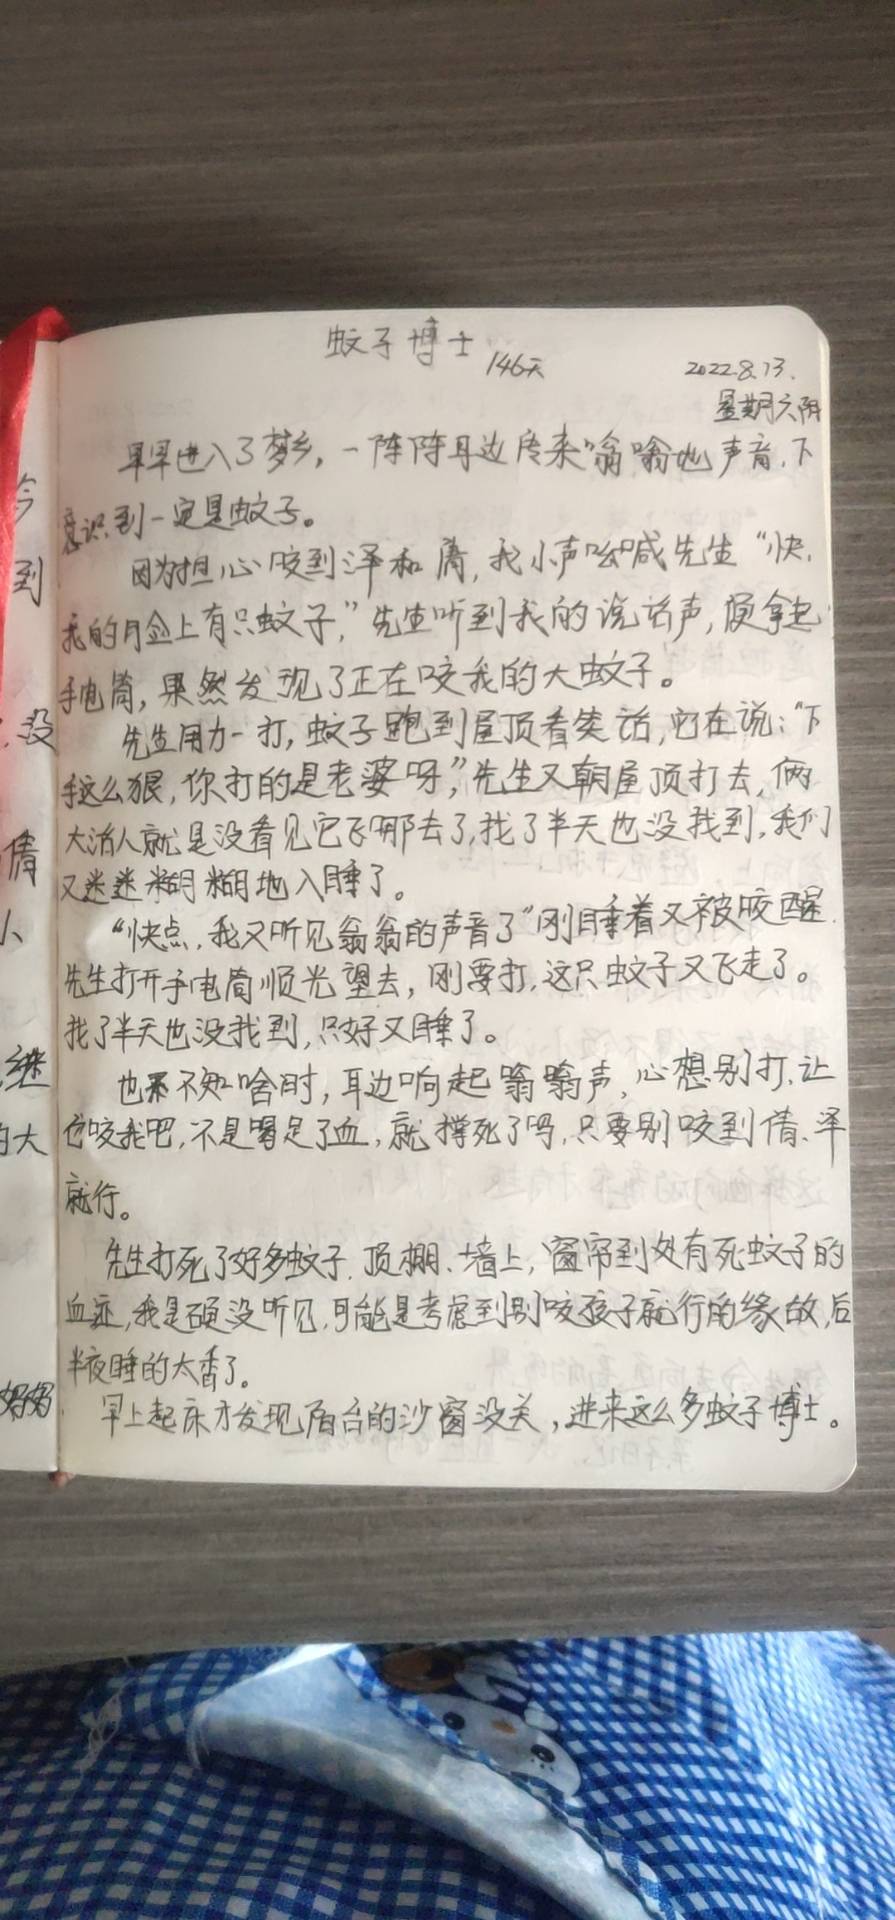 今
到
没
倩
小
继
的大
妈妈
蚊子博士
146天
2022.8.13.
星期六阴
早早进入了梦乡，一阵阵耳边传来“嗡嗡地声音，下
意识到一定是蚊子。
因为担心咬到泽和倩，我小声呦喊先生“快，
我的月佥上有只蚊子，”先生听到我的说话声，便拿起
手电筒，果然发现了正在咬我的大蚊子。
先生用力一打，蚊子跑到屋顶看笑话，它在说：“下
手这么狠，你打的是老婆呀，”先生又朝屋顶打去，俩
大活人就是没看见它飞哪去了，找了半天也没找到，我们
又迷迷糊糊地入睡了。
“快点，我又听见翁翁的声音了”刚睡着又被咬醒，
先生打开手电筒顺光望去，刚要打，这只蚊子又飞走了。
找了半天也没找到，只好又睡了。
也不知啥时，耳边响起嗡嗡声，心想别打，让
它咬我吧，不是喝足了血，就撑死了吗，只要别咬到倩、泽
就行。
先生打死了好多蚊子，顶棚、墙上，窗帘到处有死蚊子的
血迹，我是硬没听见，可能是考虑到别咬孩子就行的缘故，后
半夜睡的太香了。
早上起床才发现阳台的沙窗没关，进来这么多蚊子博士。